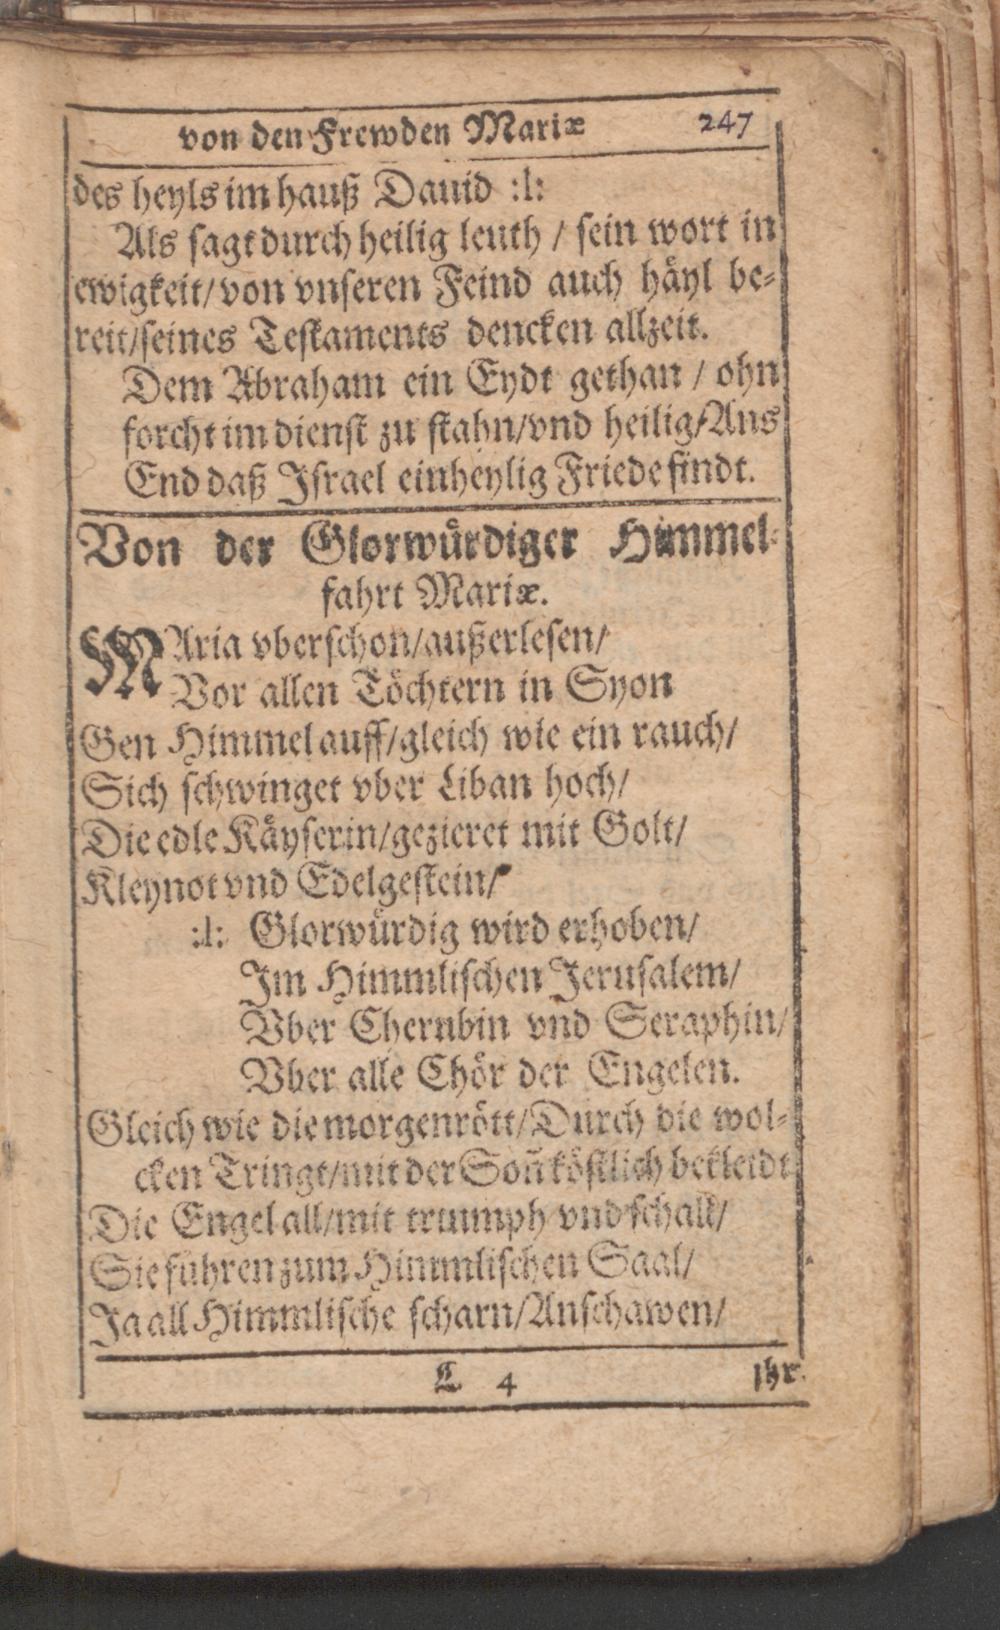 von den Frewden Mariæ 247
des heyls im hauß Dauid :|:
Als sagt durch heilig leuth / sein wort in
ewigkeit/von vnseren Feind auch häyl be-
reit/seines Testaments dencken allzeit.
Dem Abraham ein Eydt gethan / ohn
forcht im dienst zu stahn/vnd heilig/Ans
End daß Israel einheylig Friede findt.
Von der Glorwürdiger Himmel-
fahrt Mariæ.
MAria vberschon/außerlesen/
Vor allen Töchtern in Syon
Gen Himmel auff/gleich wie ein rauch/
Sich schwinget vber Liban hoch/
Die edle Käyserin/gezieret mit Golt/
Kleynot vnd Edelgestein/
:|: Glorwürdig wird erhoben/
Im Himmlischen Jerusalem/
Vber Cherubin vnd Seraphin/
Vber alle Chör der Engelen.
Gleich wie die morgenrött/Durch die wol-
cken Tringt/mit der Soñ köstlich bekleidt
Die Engel all/mit triumph vnd schall/
Sie führen zum Himmlischen Saal/
Ja all Himmlische scharn/Anschawen/
L 4 Ihr